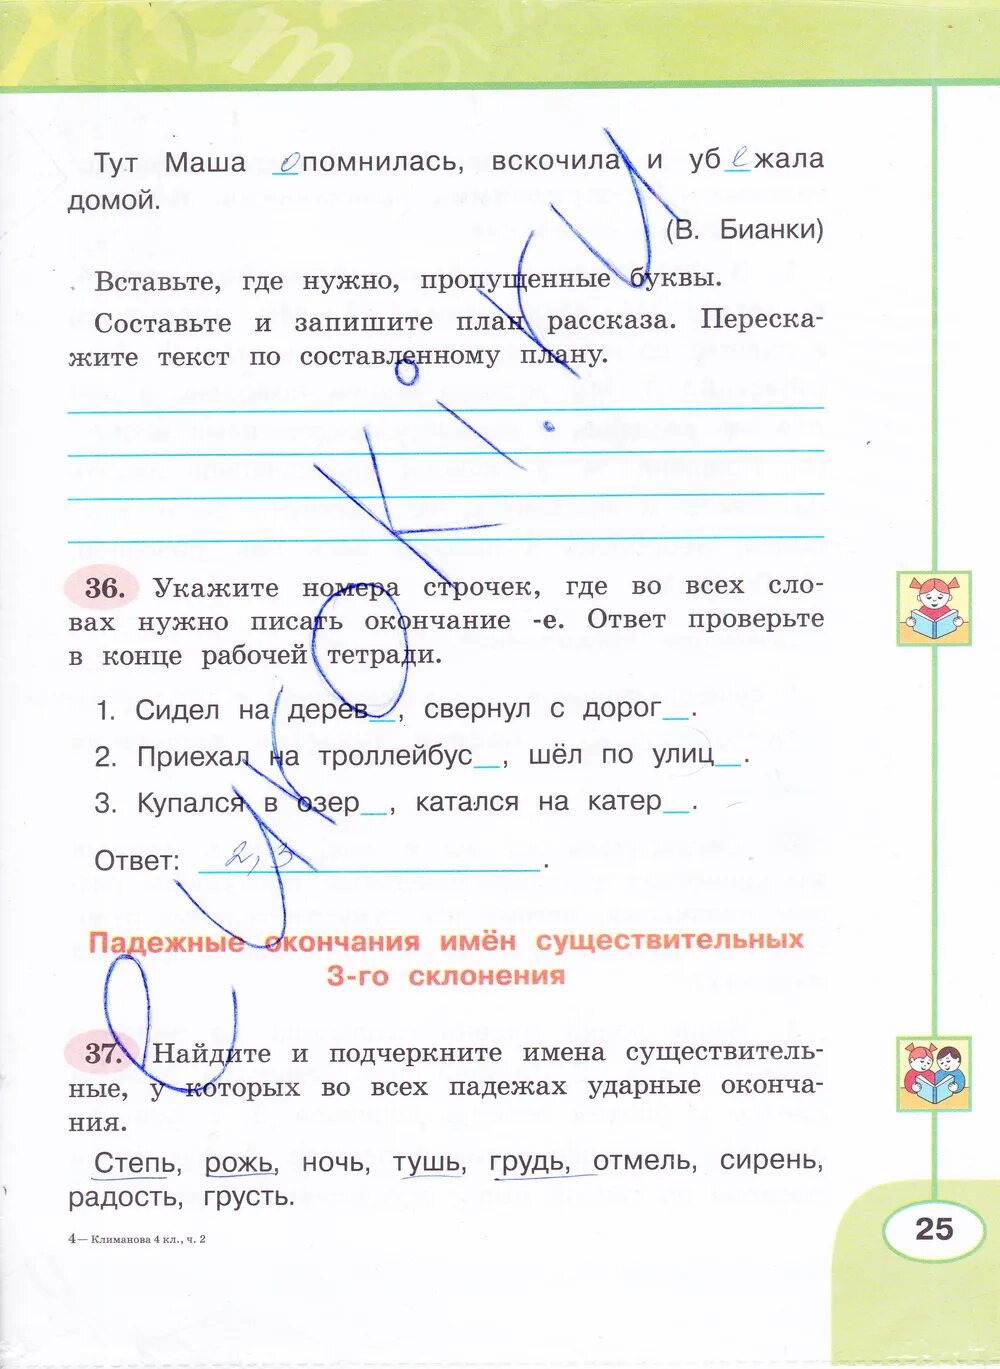 Тут Маша опомнилась, вскочила и убежала
домой.
(В. Бианки)
Вставьте, где нужно, пропущенные буквы.
Составьте и запишите план рассказа. Переска-
жите текст по составленному плану.
36. Укажите номера строчек, где во всех сло-
вах нужно писать окончание -е. Ответ проверьте
в конце рабочей тетради.
1. Сидел на дерев__, свернул с дорог__.
2. Приехал на троллейбус__, шёл по улиц__.
3. Купался в озер__, катался на катер__.
Ответ: 2, 3.
Падежные окончания имён существительных
3-го склонения
37. Найдите и подчеркните имена существитель-
ные, у которых во всех падежах ударные оконча-
ния.
Степь, рожь, ночь, тушь, грудь, отмель, сирень,
радость, грусть.
4— Климанова 4 кл., ч. 2
25